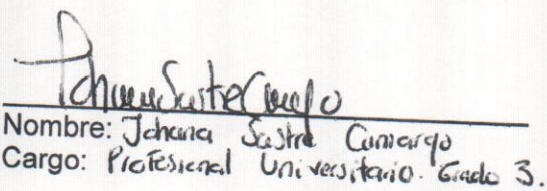 Johana Sastre Camargo
Nombre: Johana Sastre Camargo
Cargo: Profesional Universitario. Grado 3.